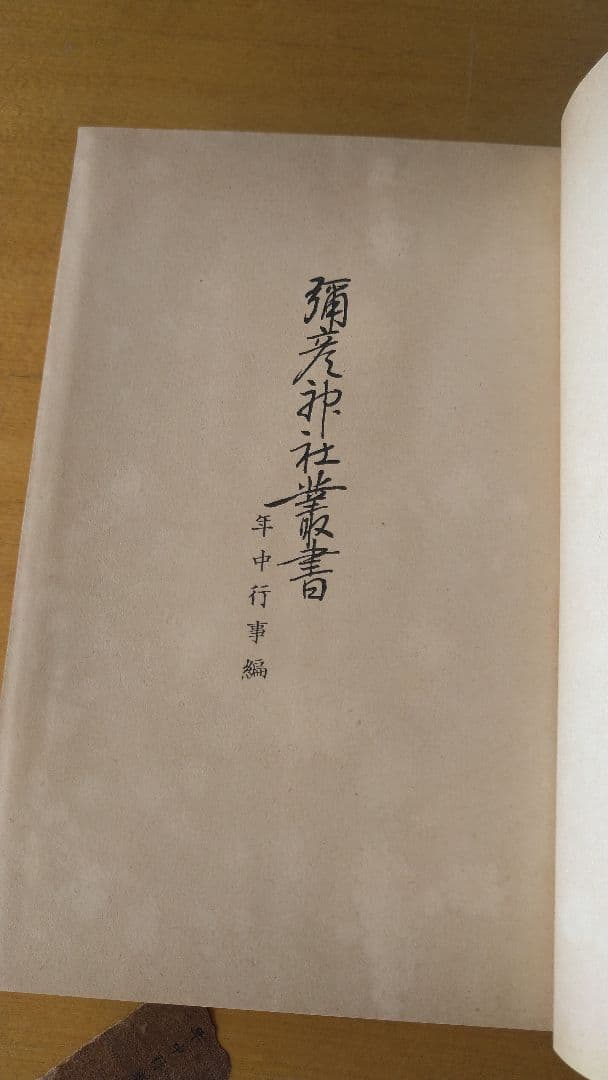 彌彦神社叢書
年中行事編